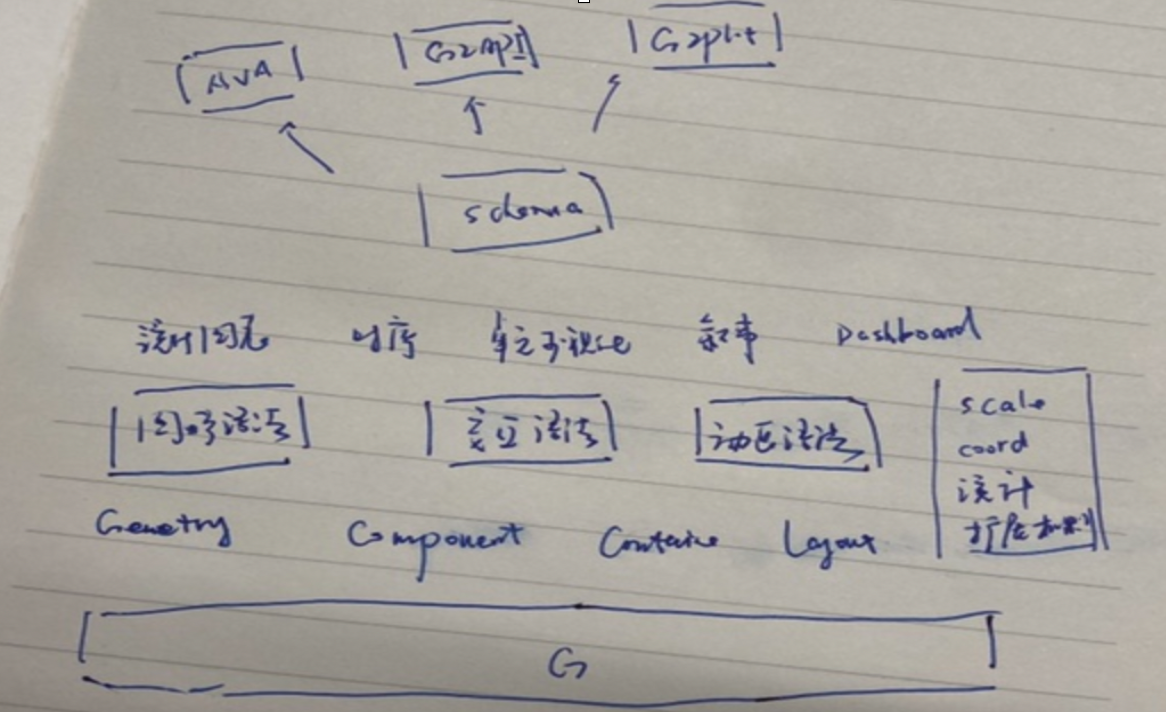 AVA G2API G2plot
schema
统计图元 时序 单元可视化 叙事 Dashboard
图形语法 交互语法 动画语法
scale
coord
统计
Geometry Component Container Layout
G